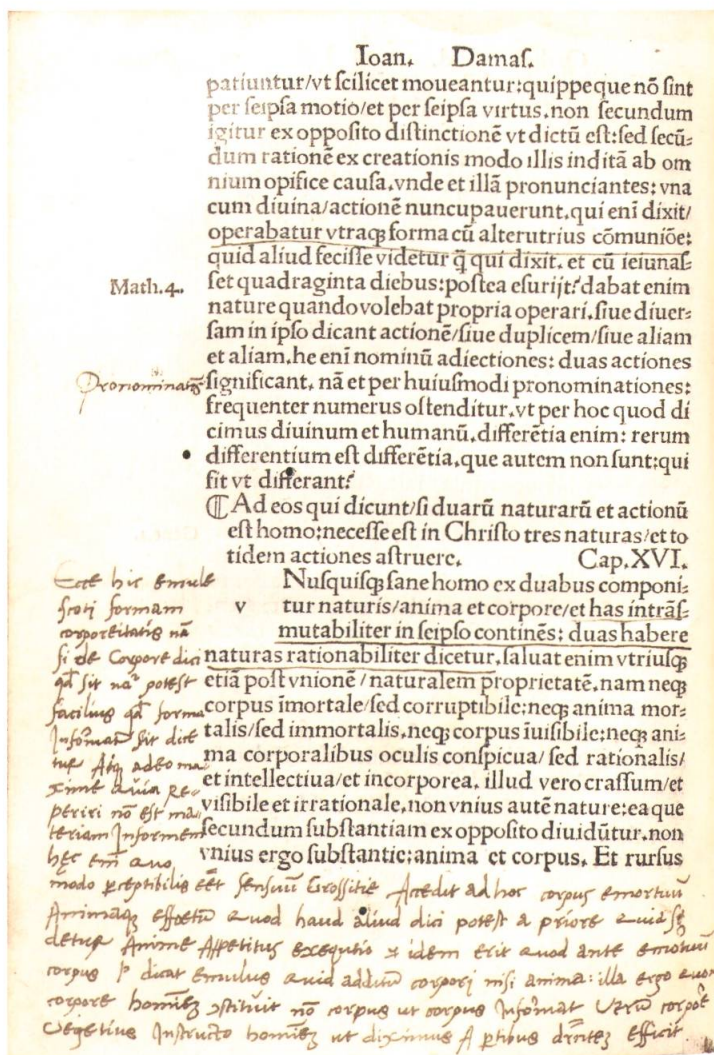 Ioan. Damaſ.
patiuntur/vt ſcilicet moueantur:quippe que nõ ſint
per ſeipſa motio/et per ſeipſa virtus.non ſecundum
igitur ex oppoſito diſtinctionẽ vt dictũ eſt:ſed ſecũ-
dum rationẽ ex creationis modo illis inditã ab om
nium opifice cauſa.vnde et illã pronunciantes: vna
cum diuina/actionẽ nuncupauerunt.qui enĩ dixit/
operabatur vtraqꝫ forma cũ alterutrius cõmuniõe:
quid aliud feciſſe videtur q̃ qui dixit. et cũ ieiunaſ-
Math.4.
ſet quadraginta diebus:poſtea eſurijt? dabat enim
nature quando volebat propria operari.ſiue diuer-
ſam in ipſo dicant actionẽ/ſiue duplicem/ſiue aliam
et aliam.he enĩ nominũ adiectiones: duas actiones
ſignificant. nã et per huiuſmodi pronominationes:
frequenter numerus oſtenditur.vt per hoc quod di
cimus diuinum et humanũ.differẽtia enim: rerum
differentium eſt differẽtia.que autem non ſunt:qui
fit vt differant?
⁋Ad eos qui dicunt/ſi duarũ naturarũ et actionũ
eſt homo:neceſſe eſt in Chriſto tres naturas/et to
tidem actiones aſtruere. Cap.XVI.
Nuſquiſqꝫ ſane homo ex duabus componi-
v tur naturis/anima et corpore/et has intrãſ-
mutabiliter in ſeipſo continẽs: duas habere
naturas rationabiliter dicetur.ſaluat enim vtriuſqꝫ
etiã poſt vnionẽ/naturalem proprietatẽ.nam neqꝫ
corpus ĩmortale/ſed corruptibile:neqꝫ anima mor-
talis/ſed immortalis.neqꝫ corpus ĩuiſibile:neqꝫ ani-
ma corporalibus oculis conſpicua/ſed rationalis/
et intellectiua/et incorporea. illud vero craſſum/et
viſibile et irrationale.non vnius autẽ nature:ea que
ſecundum ſubſtantiam ex oppoſito diuidũtur.non
vnius ergo ſubſtantie:anima et corpus. Et rurſus
Ecce hic emule
ſcoti formam
corporeitatis nã
ſi de Corpore dici
qd ſit potest
facilius forma
ſit dice
tur Atqꝫ adeo ma
xime Quia re-
periri nõ eſt ma
teriam Informem
hęc em̃ quo
modo ꝑceptibilis eẽt ſenſuũ Groſſitie Accedit ad hoc corpus emortuũ
Animaqꝫ effoetũ Quod haud aliud dici potest a priore
Anime Appetitus exequtio idem erit Quod ante emotuũ
corpus dicat emulus Quid additũ corpori niſi anima: illa ergo
corpore nõ corpus ut corpus Informat
Vegetius Inſtructo ut diximus A efficit